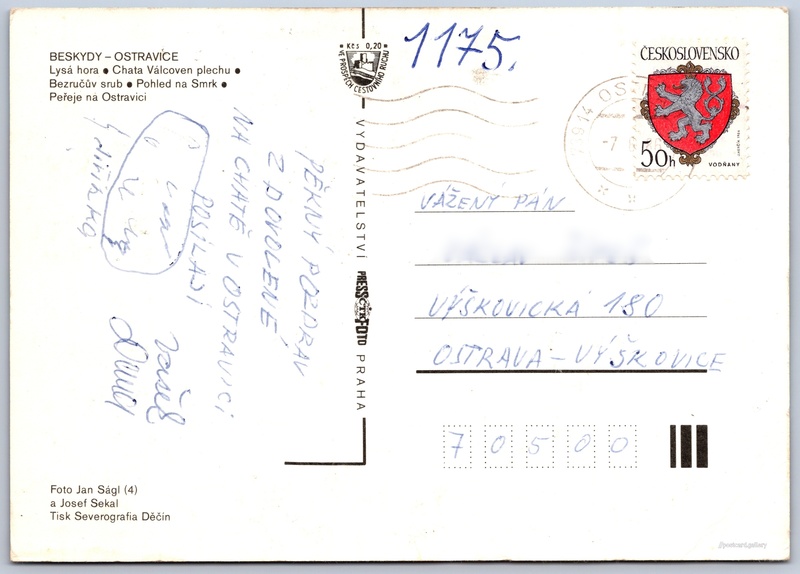 BESKYDY – OSTRAVÍCE
Lysá hora ● Chata Válcoven plechu ●
Bezručův srub ● Pohled na Smrk ●
Peřeje na Ostravici
Kčs 0,20
VE PROSPĚCH CESTOVNÍHO RUCHU
1175.
ČESKOSLOVENSKO
50h
VODŇANY
PĚKNÝ POZDRAV
Z DOVOLENÉ
NA CHATĚ V OSTRAVICI
POSÍLAJÍ
VYDAVATELSTVÍ PRESSFOTO PRAHA
ČTK
VÁŽENÝ PÁN
VÝŠKOVICKÁ 180
OSTRAVA – VÝŠKOVICE
70500
Foto Jan Ságl (4)
a Josef Sekal
Tisk Severografia Děčín